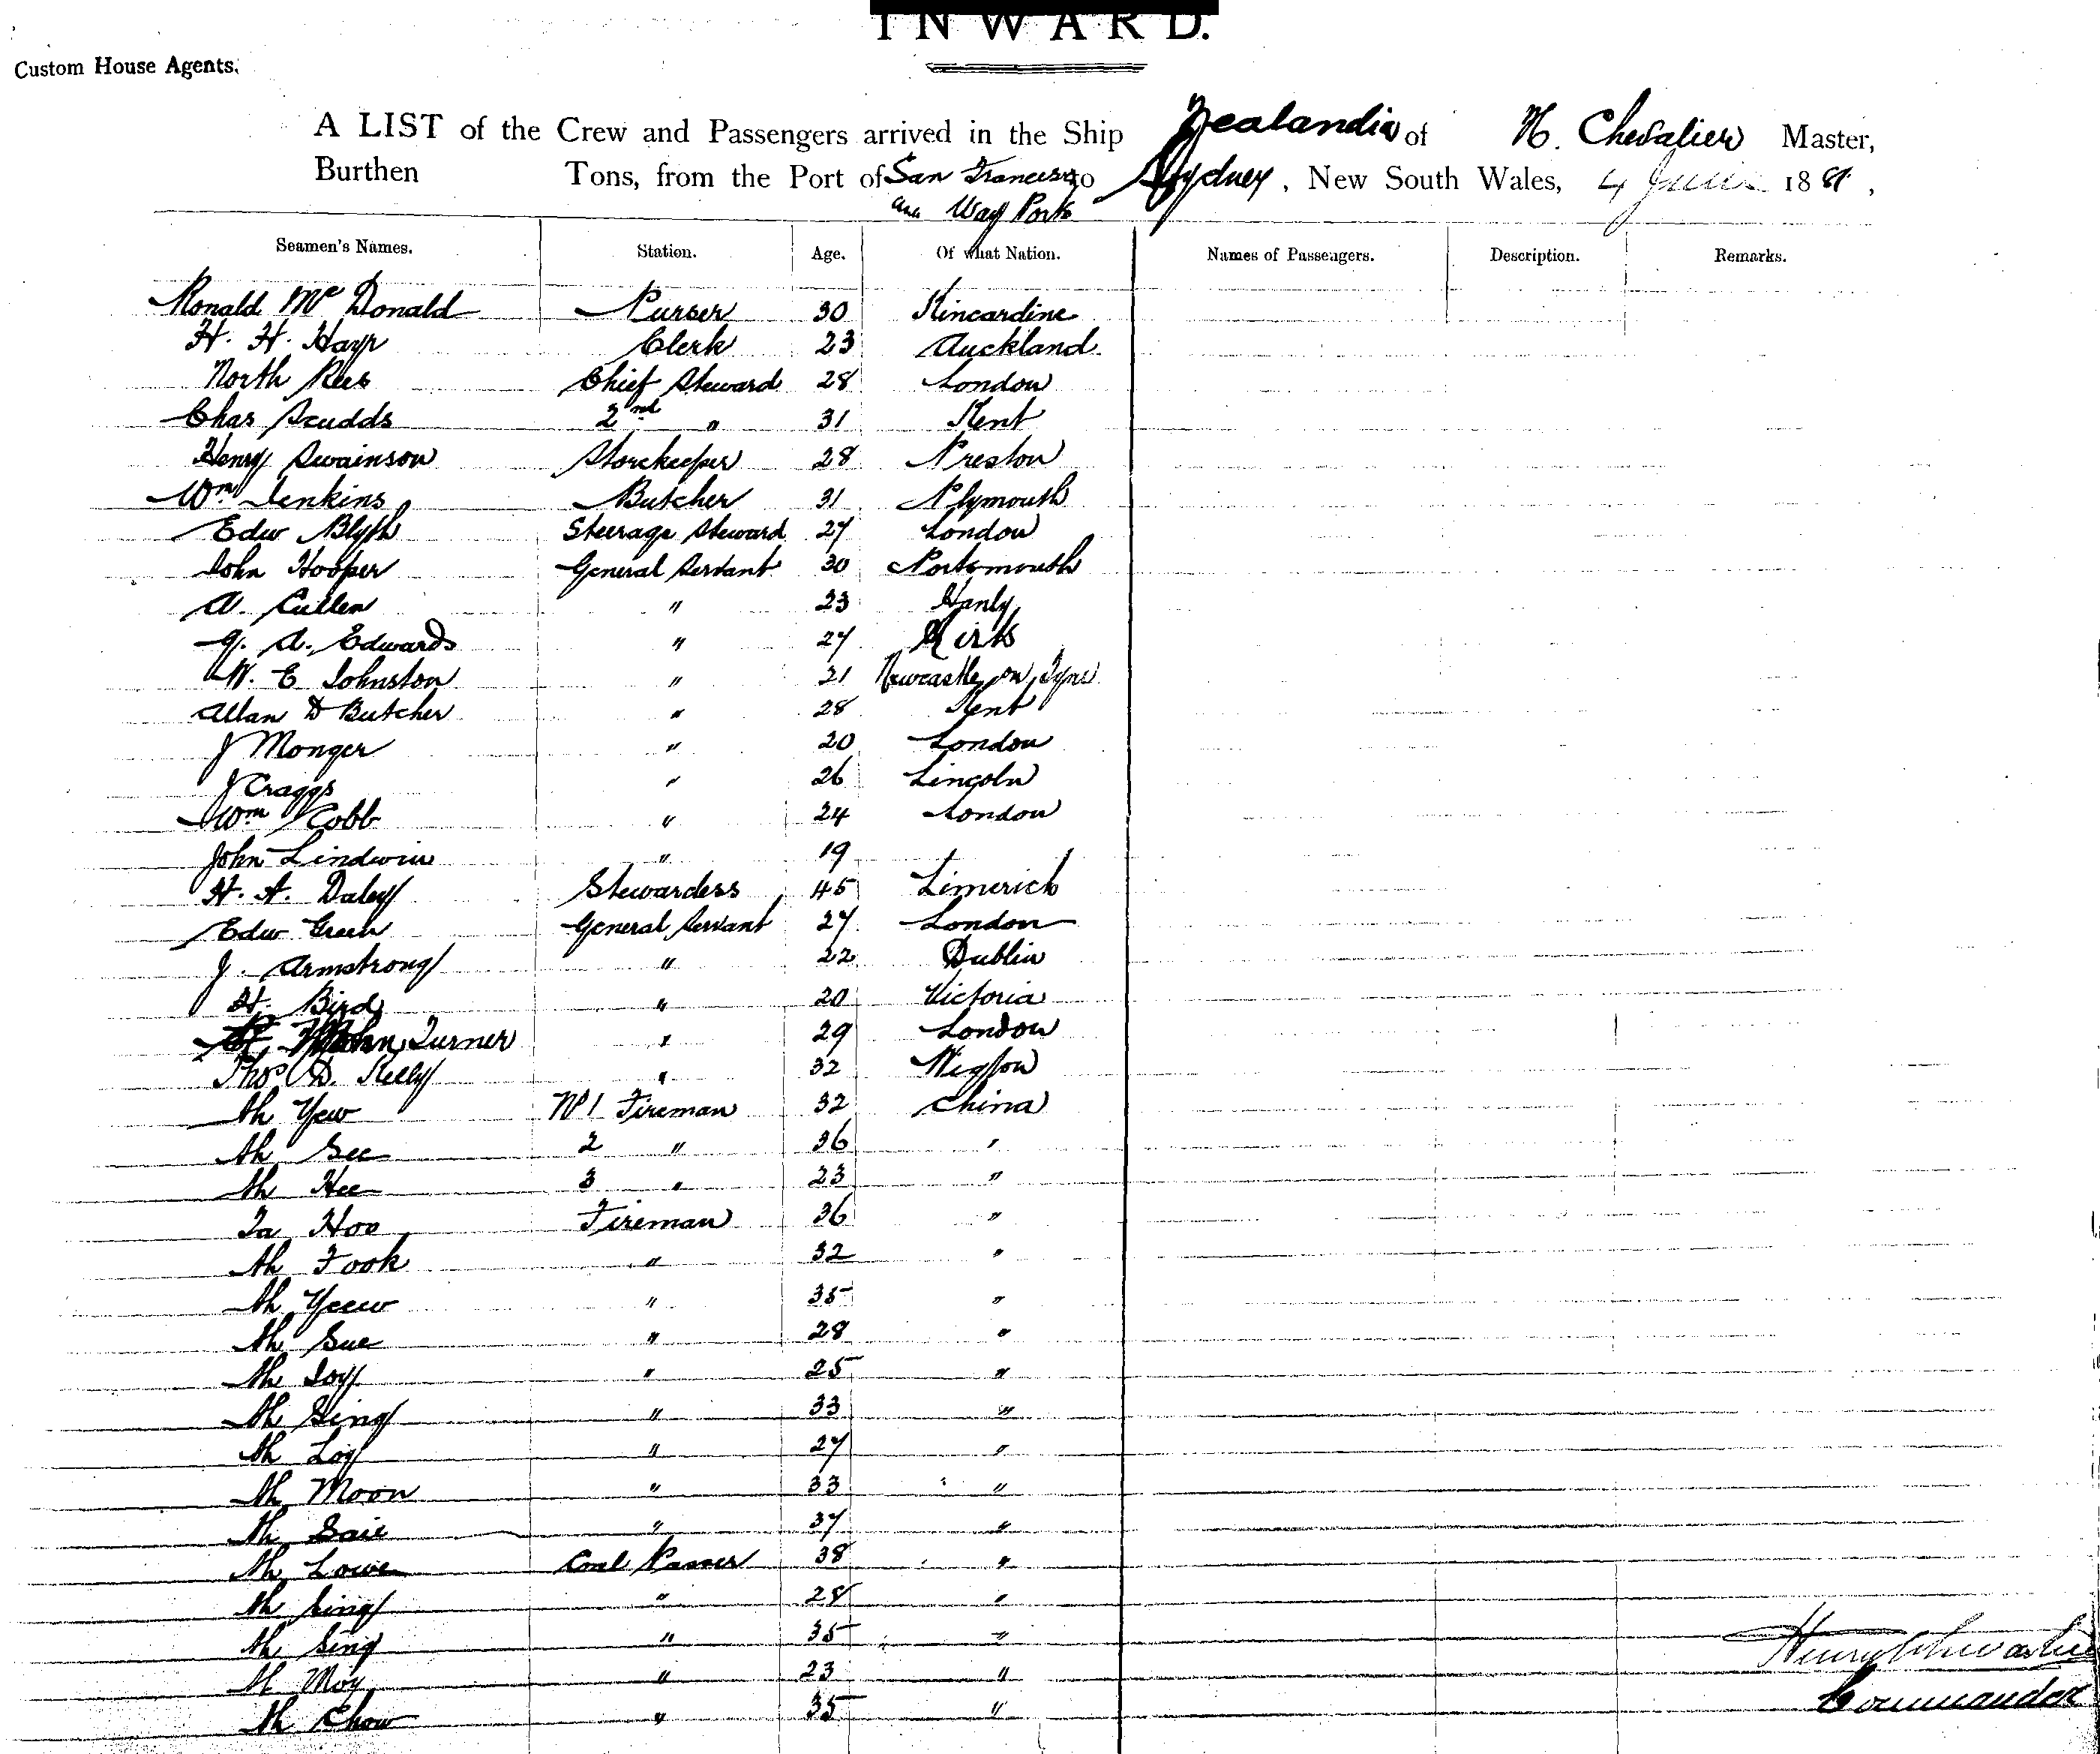 INWARD.
Custom House Agents.
A LIST of the Crew and Passengers arrived in the Ship Zealandia of H. Chevalier Master,
Burthen Tons, from the Port of San Francisco to Sydney, New South Wales, 4 June 1881,
and Way Ports
Seamen's Names. Station. Age. Of what Nation. Names of Passengers. Description. Remarks.
Ronald McDonald Purser 30 Kincardine
H. H. Hayr Clerk 23 Auckland
North Rees Chief Steward 28 London
Chas Scudds 2nd " 31 Kent
Henry Swainson Storekeeper 28 Preston
Wm Jenkins Butcher 31 Plymouth
Edw Blyth Steerage Steward 27 London
John Hooper General Servant 30 Portsmouth
A. Cullen " 23 Hanly
G. A. Edwards " 27
W. E Johnston " 21 Newcastle on Tyne
Allan D Butcher " 28 Kent
J Monger " 20 London
J Craggs " 26 Lincoln
Wm Cobb " 24 London
John Lindwin " 19
H. A. Daley Stewardess 45 Limerick
Edw Green General Servant 27 London
J. Armstrong " 22 Dublin
H. Bird " 20 Victoria
John Turner " 29 London
Thos D. Kelly " 32 Wigton
Ah Yew No 1 Fireman 32 China
Ah See 2 " 36 "
Ah Hee 3 " 23 "
Ta Hoo Fireman 36 "
Ah Fook " 32 "
Ah Yeew " 35 "
Ah Sue " 28 "
Ah Joy " 25 "
Ah Sing " 33 "
Ah Loy " 27 "
Ah Moon " 33 "
Ah Saie " 37 "
Ah Lowe Coal Passer 38 "
Ah Sing " 28 "
Ah Sing " 35 "
Ah Moy " 23 "
Ah Chow " 35 "
Henry Chevalier
Commander